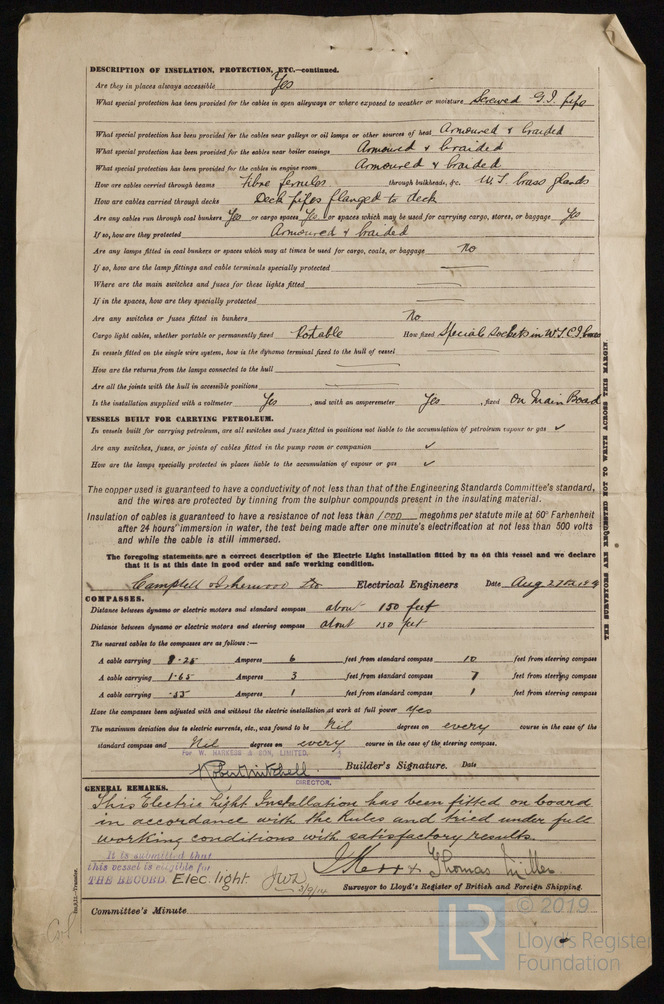 DESCRIPTION OF INSULATION, PROTECTION, ETC.—continued.
Are they in places always accessible Yes
What special protection has been provided for the cables in open alleyways or where exposed to weather or moisture Screwed G.I. pipe
What special protection has been provided for the cables near galleys or oil lamps or other sources of heat Armoured & braided
What special protection has been provided for the cables near boiler casings Armoured & braided
What special protection has been provided for the cables in engine room Armoured & braided
How are cables carried through beams fibre ferrules through bulkheads, &c. W.T. brass glands
How are cables carried through decks Deck pipes flanged to deck
Are any cables run through coal bunkers Yes or cargo spaces Yes or spaces which may be used for carrying cargo, stores, or baggage Yes
If so, how are they protected Armoured & braided
Are any lamps fitted in coal bunkers or spaces which may at times be used for cargo, coals, or baggage No
If so, how are the lamp fittings and cable terminals specially protected
Where are the main switches and fuses for these lights fitted
If in the spaces, how are they specially protected
Are any switches or fuses fitted in bunkers No
Cargo light cables, whether portable or permanently fixed Portable How fixed Special sockets in W.T. C.I. boxes
In vessels fitted on the single wire system, how is the dynamo terminal fixed to the hull of vessel
How are the returns from the lamps connected to the hull
Are all the joints with the hull in accessible positions
Is the installation supplied with a voltmeter Yes , and with an amperemeter Yes , fixed On Main Board
VESSELS BUILT FOR CARRYING PETROLEUM.
In vessels built for carrying petroleum, are all switches and fuses fitted in positions not liable to the accumulation of petroleum vapour or gas ✓
Are any switches, fuses, or joints of cables fitted in the pump room or companion ✓
How are the lamps specially protected in places liable to the accumulation of vapour or gas ✓
The copper used is guaranteed to have a conductivity of not less than that of the Engineering Standards Committee's standard,
and the wires are protected by tinning from the sulphur compounds present in the insulating material.
Insulation of cables is guaranteed to have a resistance of not less than 1000 megohms per statute mile at 60° Farhenheit
after 24 hours' immersion in water, the test being made after one minute's electrification at not less than 500 volts
and while the cable is still immersed.
The foregoing statements are a correct description of the Electric Light installation fitted by us on this vessel and we declare
that it is at this date in good order and safe working condition.
Campbell & Isherwood Ltd Electrical Engineers Date Aug
COMPASSES.
Distance between dynamo or electric motors and standard compass about 150 feet
Distance between dynamo or electric motors and steering compass about 150 feet
The nearest cables to the compasses are as follows:—
A cable carrying 8.25 Amperes 6 feet from standard compass 10 feet from steering compass
A cable carrying 1.65 Amperes 3 feet from standard compass 7 feet from steering compass
A cable carrying .55 Amperes 1 feet from standard compass 1 feet from steering compass
Have the compasses been adjusted with and without the electric installation at work at full power Yes
The maximum deviation due to electric currents, etc., was found to be Nil degrees on every course in the case of the
standard compass and Nil degrees on every course in the case of the steering compass.
For W. HARKESS & SON, LIMITED.
Robert Mitchell Builder's Signature. Date
DIRECTOR.
GENERAL REMARKS.
This Electric Light Installation has been fitted on board
in accordance with the Rules and tried under full
working conditions with satisfactory results.
It is submitted that
this vessel is eligible for
THE RECORD. Elec. light.
3/9/14
Thomas Miller
Surveyor to Lloyd's Register of British and Foreign Shipping.
Committee's Minute
THE SURVEYORS ARE REQUESTED NOT TO WRITE ACROSS THIS MARGIN.
Transfer.
LR © 2019
Lloyd's Register
Foundation